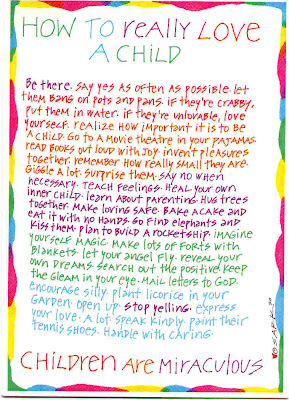 HOW TO really LOVE
A CHILD
Be there. Say yes as often as possible. let
them Bang on pots and pans. if they're crabby,
put them in water. if they're unlovable, love
yourself. realize how important it is to be
a child. Go to a movie theatre in your pajamas.
read books out loud with joy. invent pleasures
together. remember how really small they are.
Giggle a lot. Surprise them. Say no when
necessary. teach feelings. Heal your own
inner child. learn about parenting. Hug trees
together. Make loving safe. Bake a cake and
eat it with no hands. Go find elephants and
kiss them. plan to build a rocketship. imagine
yourself magic. Make lots of forts with
Blankets. let your angel fly. reveal your
own dreams. Search out the positive. keep
the gleam in your eye. Mail letters to God.
Encourage silly. plant licorice in your
Garden. open up. Stop yelling. express
your love. A lot. speak kindly. paint their
tennis shoes. Handle with caring.
CHildren Are Miraculous
SARK